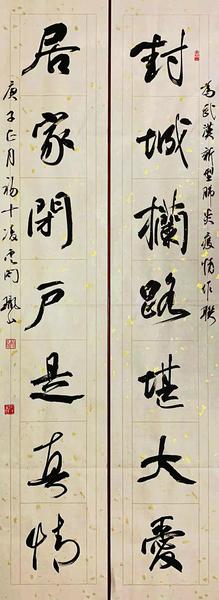 為武漢新型肺炎疫情作聯
封城攔路堪大愛
居家閉戶是真情
庚子正月初十凌雲阁